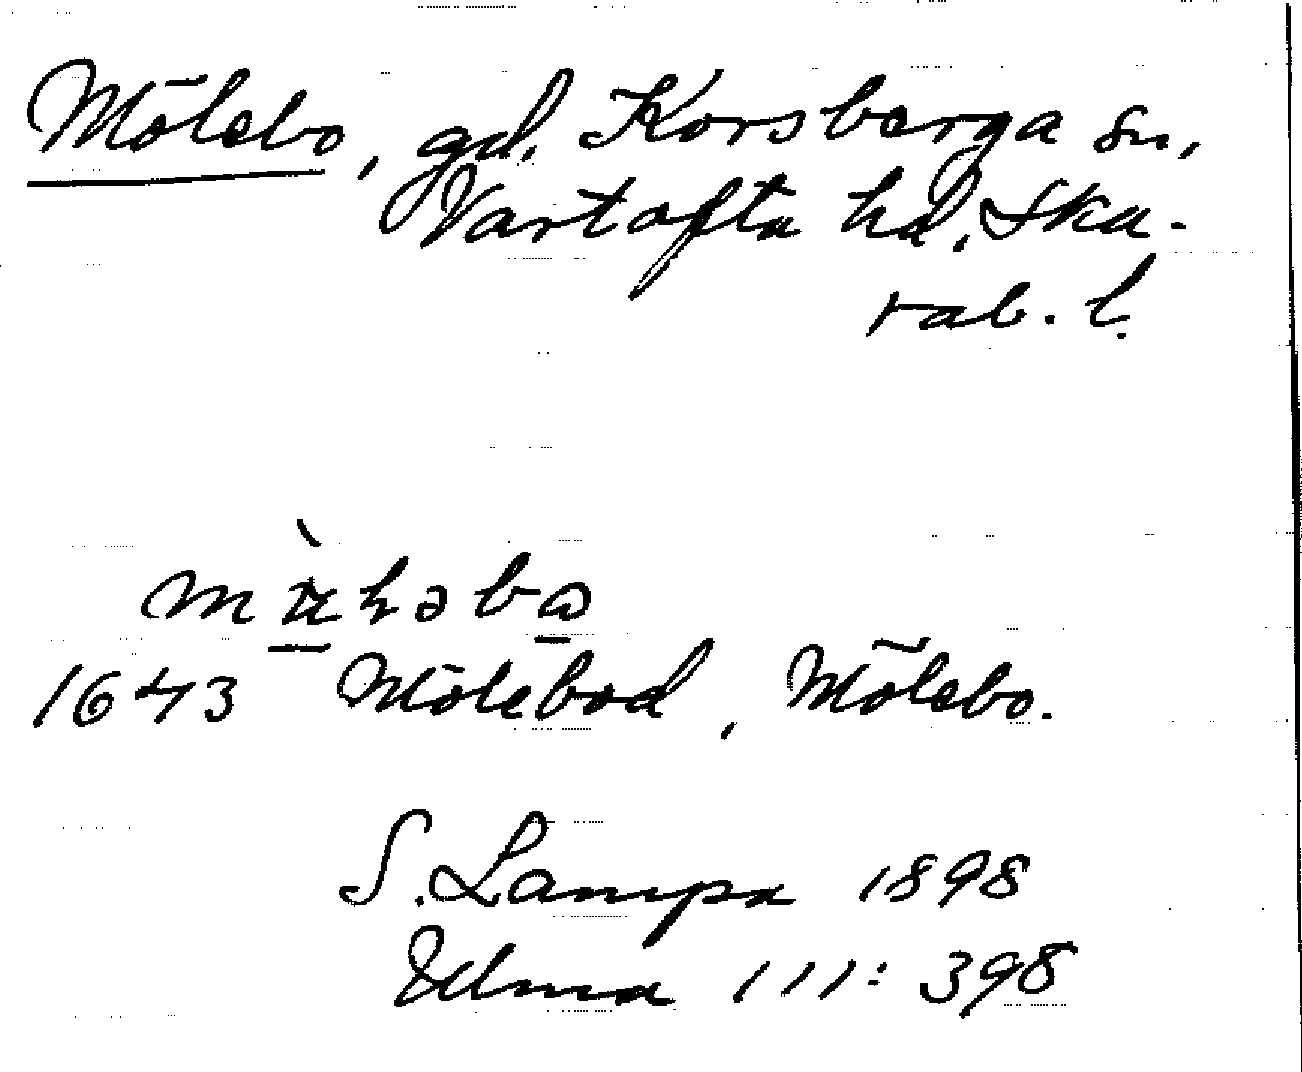 Mölebo, gd. Korsberga sn,
Vartofta hd, Ska-
rab. l.
1643 Mölebod, Mölebo.
S. Lampa 1898
Ulma 111: 398